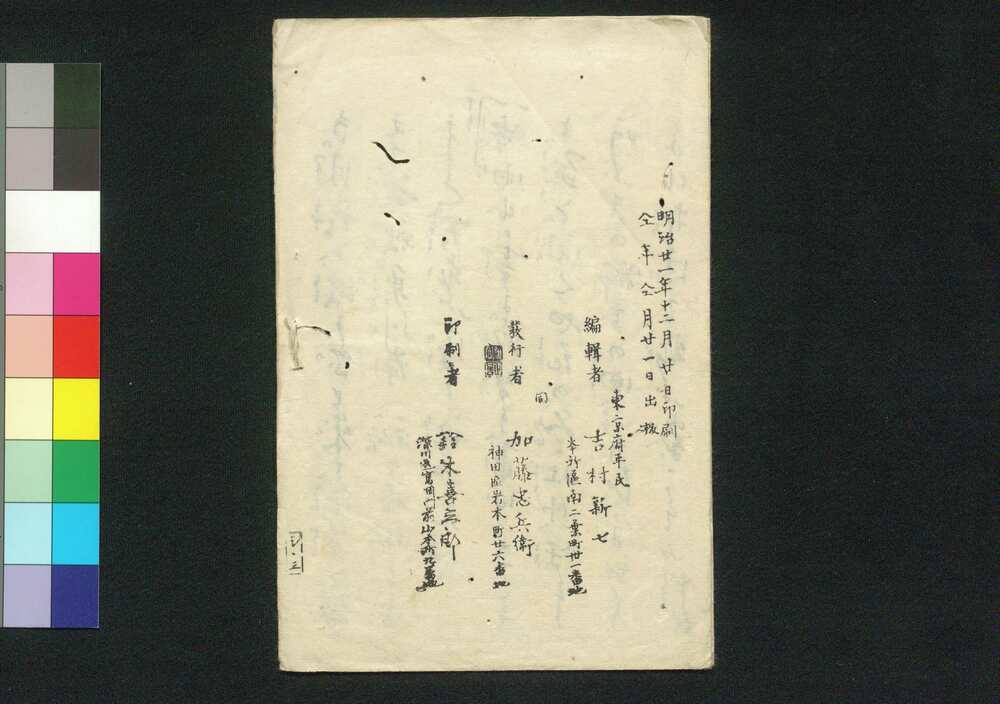 明治廿一年十二月廿日印刷
仝年仝月廿一日出板
東京府平民
編輯者 吉村新七
本所區南二葉町廿一番地
同
発行者 加藤忠兵衛
神田區岩本町廿六番地
印刷者 鈴木喜三郎
深川區富岡門前山本町九番地